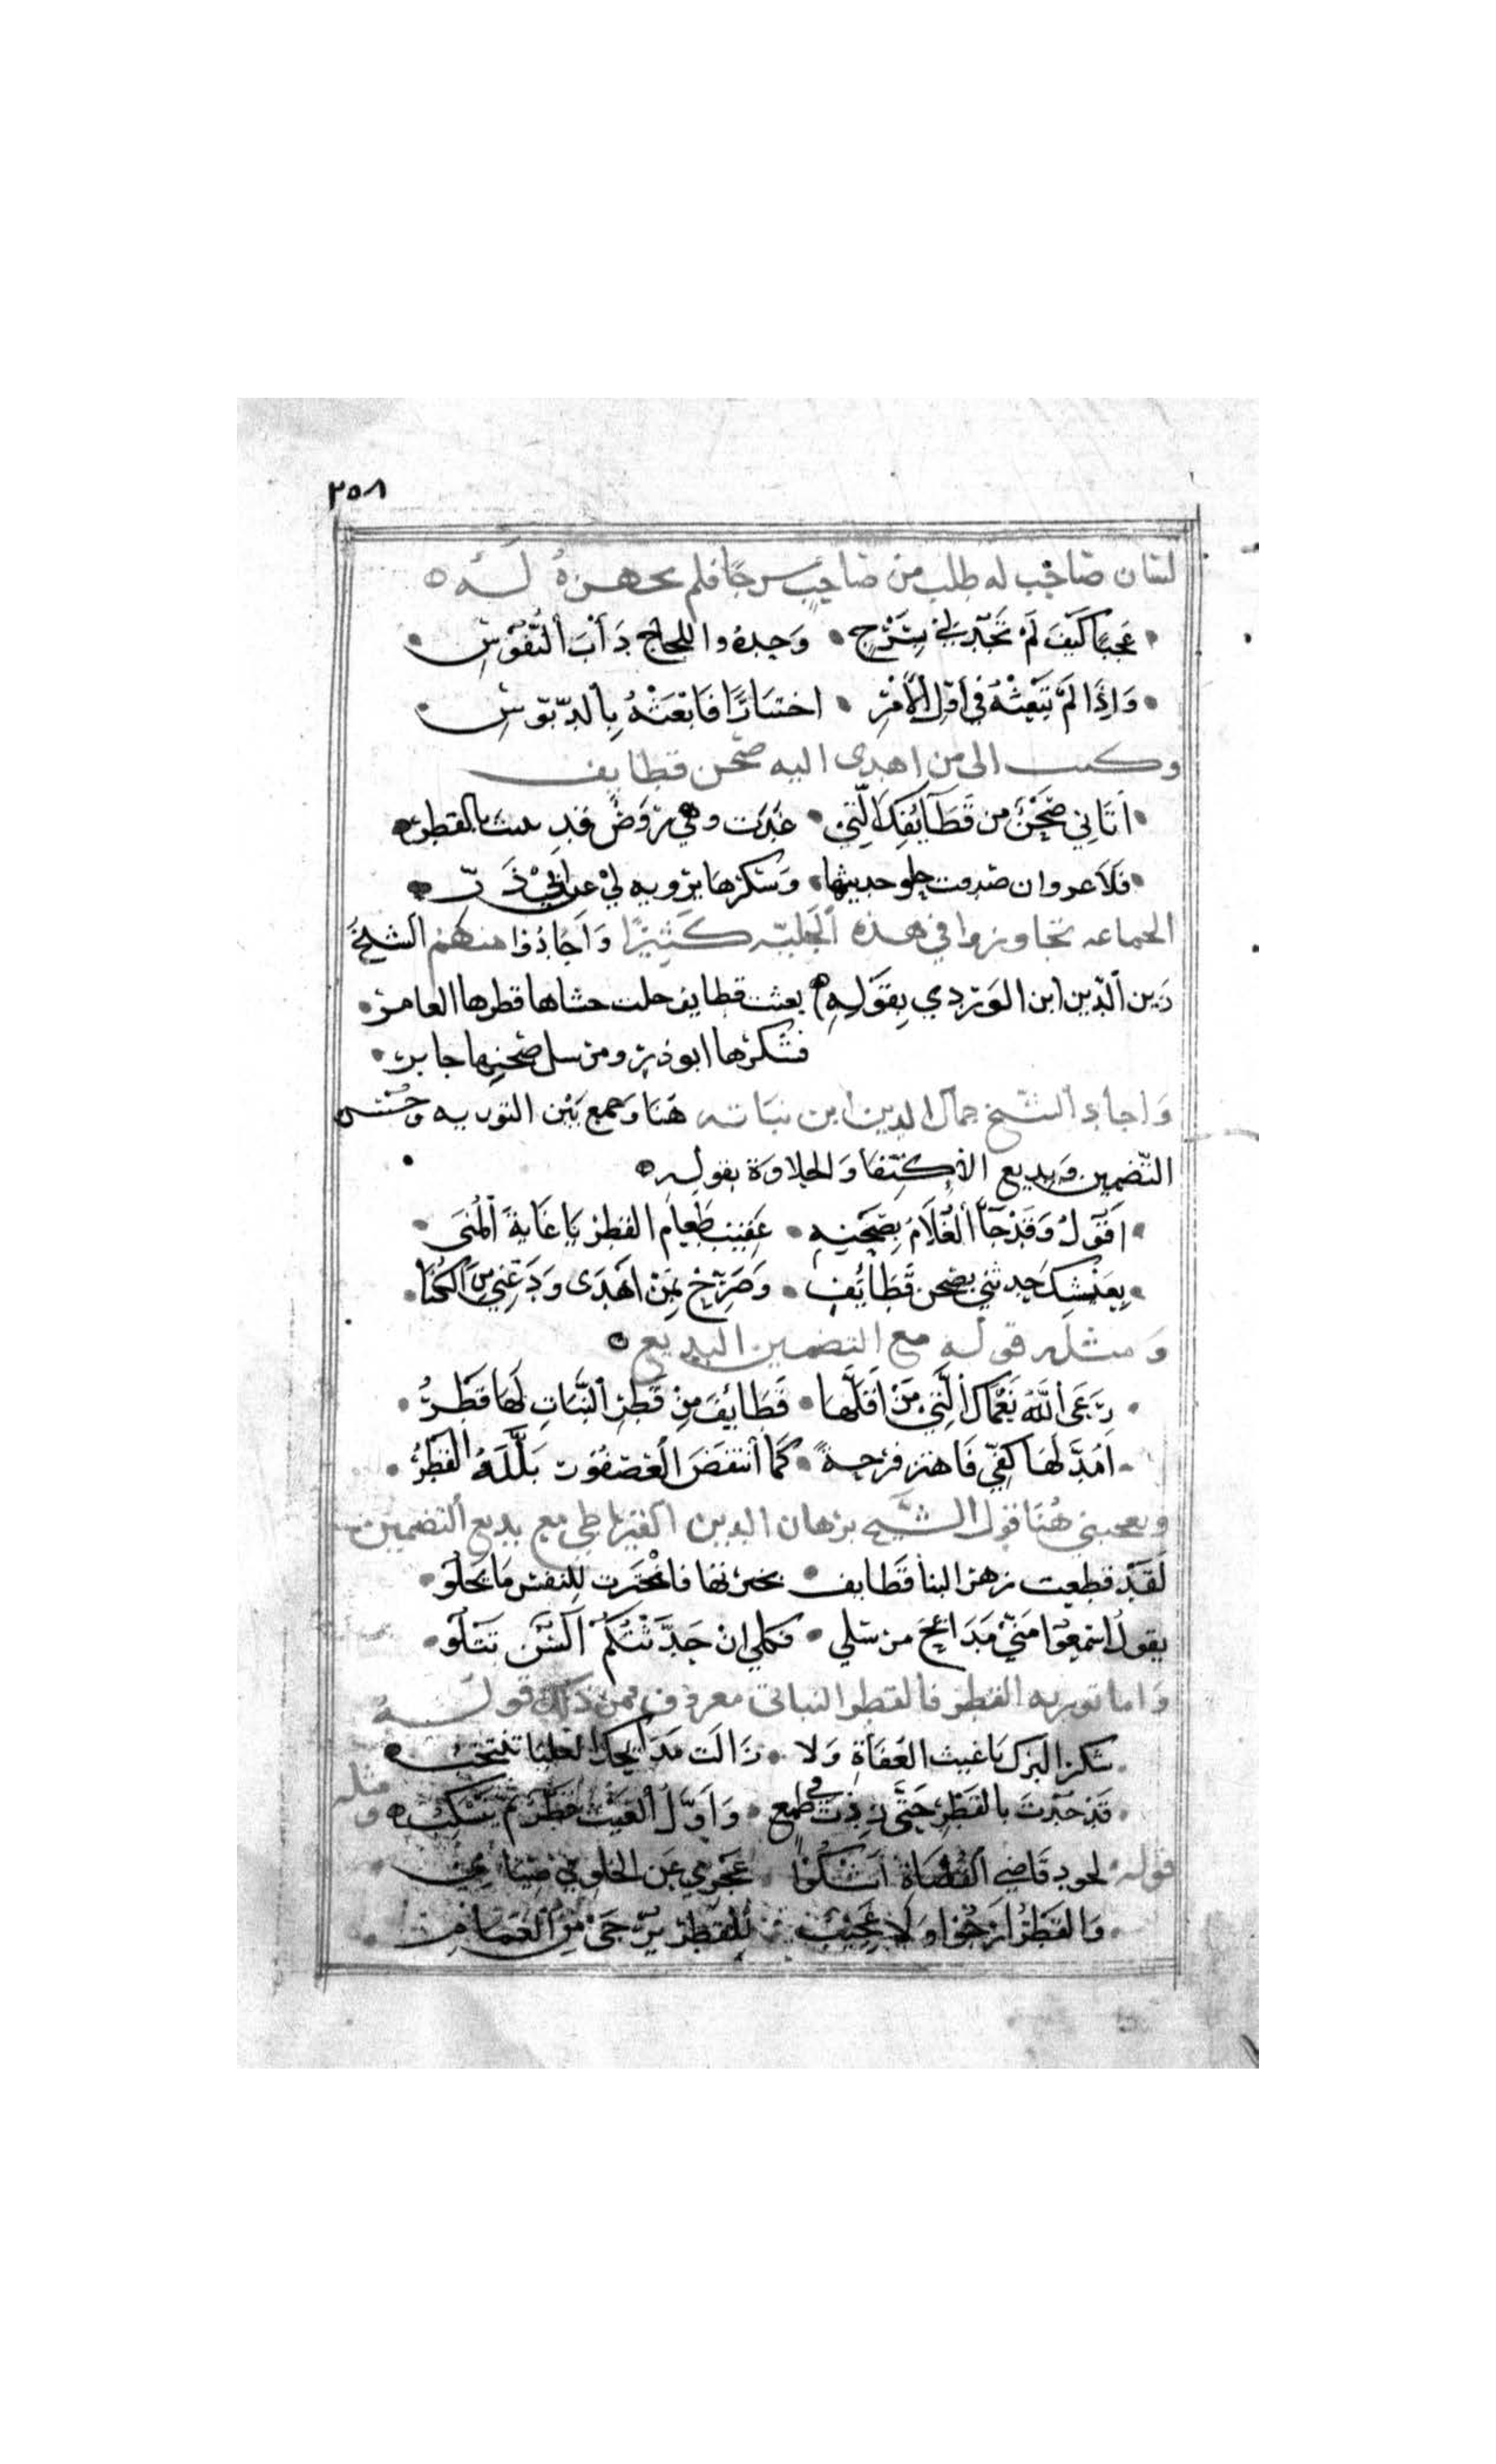 ٢٥٨
لسان صاحب له طلب من صاحب سرجا فلم يجهزه له
عَجبًا كَيفَ لَمْ تَجُد لي بِسَرْجٍ وَحيدهُ واللجاج دَأْبَ النُّفوسِ
وَاِذَا لَمْ تَبْعَثْهُ في أوّل الأمْرِ اختيارًا فَابْعَثْهُ بِالدَّبّوسِ
وكتب الى من اهدى اليه صحن قطايف
اَتَاني صَحْنٌ من قَطَآئِفِكَ الَّتِي غَدَت وهي رَوْضٌ قد نبت بالقطر
فَلَا غرو ان صدقت حلو حديثها وَسُكرهَا يرويه لي عن ابي ذَرّ
الجماعه تجاوزوا في هذه الْحَلبَه كَثِيرًا وَاَجَادُوا منهم الشيخُ
زين الدّين ابن الوَردي بِقَوْلِهِ بعثت قطايف حلت حشاها قطرها العامر
فسُكرها ابوذر ومرسل صحنها جابر
وَاجاد الشّيخ جمال الدين ابن نباته هَنا وجمع بَيْن التوريه وحُسْن
التّضمين وبديع الاكتفا وَالحلاوَة بقوله
اَقُولُ وَقَدْ جَآ الْغُلَامُ بِصَحْنِهِ عَقِيب طَعام الفطْر يَا غَايةَ الْمُنَى
بِعَيْشِكَ حدثني بصحن قَطَائِفٍ وَصَرِّحْ بِمَنْ اَهْدَى وَدَعْنِي مِنَ الْكُنَا
وَمثله قوله مع التضمين البديع
رَعَى اللَّهُ نَعْمَاكَ الَّتِي مَنْ اَقَلّهَا قَطَايِفَ مِنْ قَطْرِ النَّبَاتِ لَهَا قَطْرُ
اَمُدّ لَهَا كَفِّي فَاهتز فرْحةً كَمَا انتَفَضَ الْعُصْفُور بَلَّلَهُ القَطْرُ
ويعجبني هُنا قول الشيخ برهان الدين القيراطي مع بديع التضمين
لَقَدْ قطعت زهر البنا قَطَايف فاخْتَرت لِلنفس مَا يَحْلُو
يقول اسْمَعُوا مَنّي مَدَائِحَ مرسَلي فكلي ان حَدَّثْتُكُمْ اَلْسُن تَتلُو
وَاما توريه القطر فالقطر النباتي معروف فمن ذلك قوله
شكرا لبرك يَا غيث العُفَاةِ وَلا زَالَت مَدَايحك العليا تنتخب
قَدْ جُدْتَ بالقَطْرِ حَتّى زِدْتَ في طَمَع وَاَوّلُ الْغَيْث قَطْر ثُمّ يَنْسَكِبُ
ومثله
قوله لجود قَاضِي الْقُضَاة اَشْكُوا عَجْزِي عَن الحَلو في صِيَامي
وَالقَطْرُ اَرْجُوا وَلا عَجِيبٌ لِلقَطْر يُرْجَى مِنَ الغَمَام